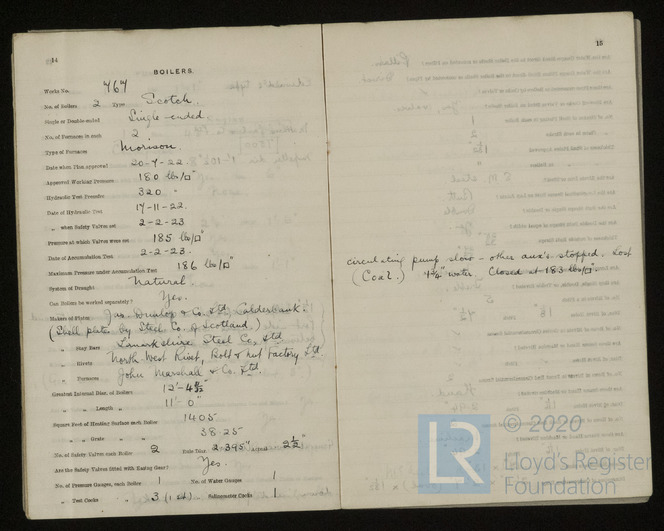 14
BOILERS.
Works No. 767
No. of Boilers 2 Type Scotch.
Single or Double-ended Single-ended.
No. of Furnaces in each 2.
Type of Furnaces Morison.
Date when Plan approved 20-7-22.
Approved Working Pressure 180 lbs/□"
Hydraulic Test Pressure 320 "
Date of Hydraulic Test 17-11-22.
" when Safety Valves set 2-2-23
Pressure at which Valves were set 185 lbs/□"
Date of Accumulation Test 2-2-23.
Maximum Pressure under Accumulation Test 186 lbs/□"
System of Draught Natural.
Can Boilers be worked separately? Yes.
Makers of Plates Jas. Dunlop & Co. Ltd. Calderbank.
(Shell plates by Steel Co. of Scotland.)
" Stay Bars Lanarkshire Steel Co. Ltd.
" Rivets North West Rivet, Bolt & Nut Factory Ltd.
" Furnaces John Marshall & Co. Ltd.
Greatest Internal Diam. of Boilers
" " Length " 11'-0"
Square Feet of Heating Surface each Boiler 1405
" " Grate " " 38.25
No. of Safety Valves each Boiler 2 Rule Diam. 2.395" Actual 2½"
Are the Safety Valves fitted with Easing Gear? Yes.
No. of Pressure Gauges, each Boiler 1 No. of Water Gauges 1
" Test Cocks " 3 Salinometer Cocks 1
15
circulating pump slow - other aux's. stopped. Lost
(Coal.) water. Closed at 183 lbs/□".
LR
© 2020
Lloyd's Register
Foundation